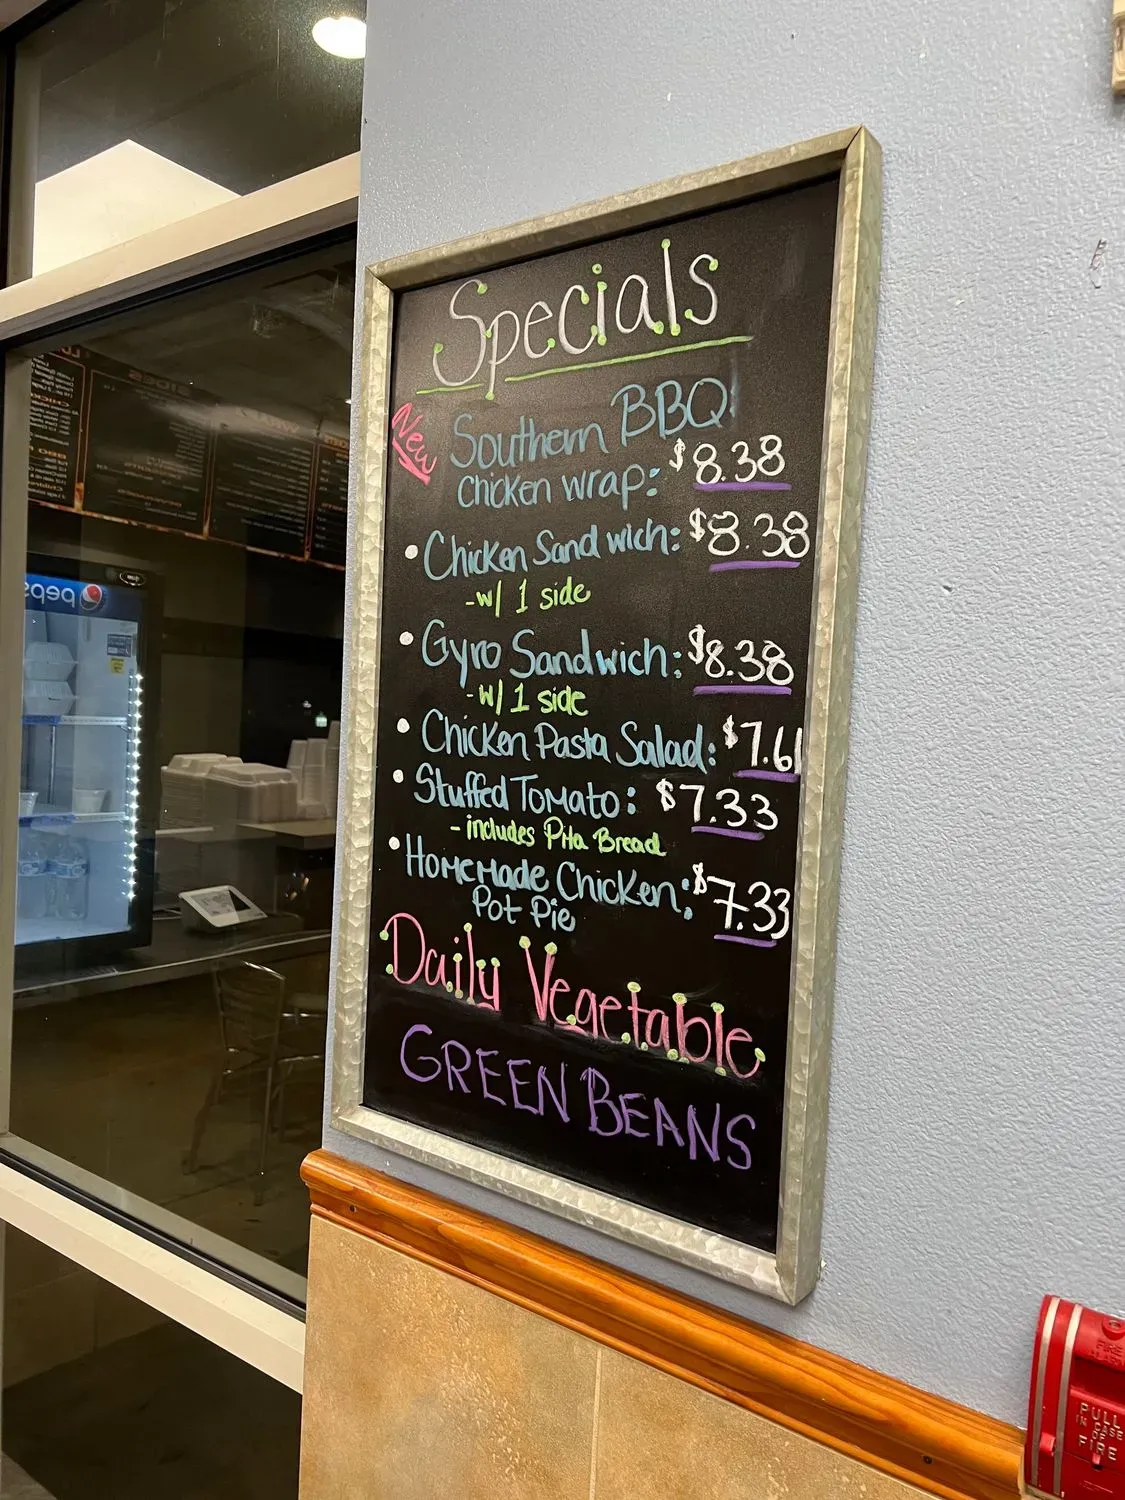 Specials
New
Southern BBQ
chicken wrap: $8.38
• Chicken Sandwich: $8.38
-w/ 1 side
• Gyro Sandwich: $8.38
-w/ 1 side
• Chicken Pasta Salad: $7.61
• Stuffed Tomato: $7.33
- includes Pita Bread
• Homemade Chicken: $7.33
Pot Pie
Daily Vegetable
GREEN BEANS
pepsi
PULL
IN CASE
OF
FIRE